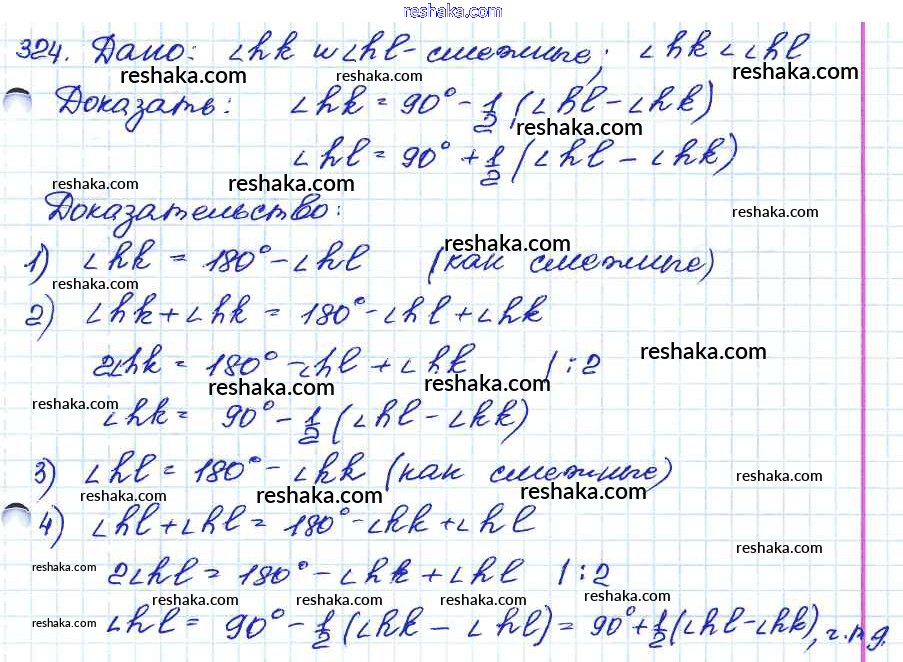 reshaka.com
324. Дано: ∠hk и ∠hl - смежные; ∠hk < ∠hl
reshaka.com reshaka.com
reshaka.com reshaka.com
Доказать: ∠hk = 90° - 1/2 (∠hl - ∠hk)
reshaka.com
∠hl = 90° + 1/2 (∠hl - ∠hk)
reshaka.com reshaka.com
Доказательство: reshaka.com
reshaka.com
1) ∠hk = 180° - ∠hl (как смежные)
reshaka.com
2) ∠hk + ∠hk = 180° - ∠hl + ∠hk
reshaka.com
2∠hk = 180° - ∠hl + ∠hk | : 2
reshaka.com reshaka.com
reshaka.com
∠hk = 90° - 1/2 (∠hl - ∠hk)
3) ∠hl = 180° - ∠hk (как смежные) reshaka.com
reshaka.com reshaka.com reshaka.com
4) ∠hl + ∠hl = 180° - ∠hk + ∠hl
reshaka.com
reshaka.com 2∠hl = 180° - ∠hk + ∠hl | : 2
reshaka.com reshaka.com reshaka.com reshaka.com
reshaka.com ∠hl = 90° - 1/2 (∠hk - ∠hl) = 90° + 1/2 (∠hl - ∠hk), ч.т.д.